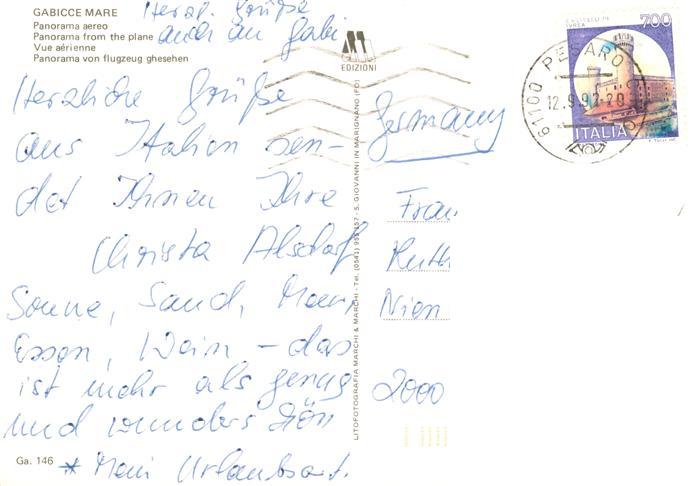 GABICCE MARE
Panorama aereo
Panorama from the plane
Vue aérienne
Panorama von flugzeug ghesehen
Herzl. Grüße
auch an Gabi
EDIZIONI
Herzliche Grüße
aus Italien sen-
det Ihnen Ihre
Christa Alsdorf
Sonne, Sand, Meer,
Essen, Wein - das
ist mehr als genug
und wunderschön
Ga. 146
* Mein Urlaubsort.
LITOFOTOGRAFIA MARCHI & MARCHI - Tel. (0541) 955157 - S. GIOVANNI IN MARIGNANO (FO)
CASTELLO DI
IVREA
700
ITALIA
61100 PESARO
12.9.92-20
Germany
Frau
Ruth
Nien
2000